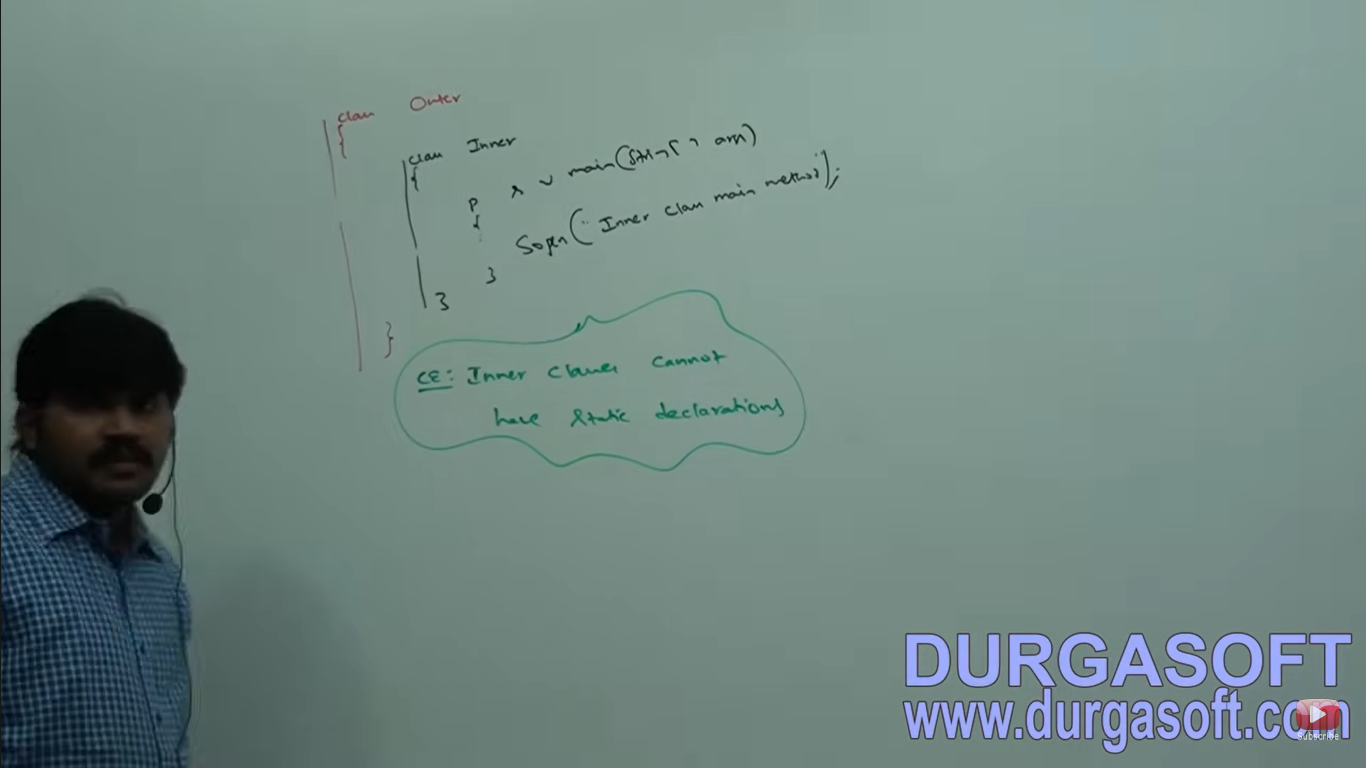 class Outer
{
class Inner
{
p s v main(String[] args)
{
Sopln("Inner class main method");
}
}
}
CE: Inner classes cannot
have static declarations
DURGASOFT
www.durgasoft.com
Subscribe